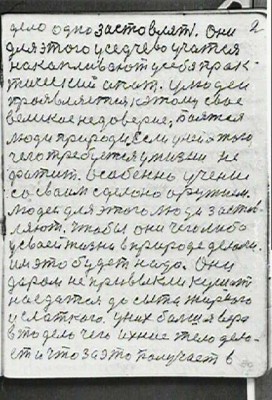 2
дело одно заставлят. Они
для этого усердчево учатся
накапливают у себя прак-
тический опит. У людей
проявляится к этому свое
великое недоверие, боятся
люди природи, если у него того
чего требуется у жизни не
фатит. Особенно учение
со своим сделано оружием.
людей для этого люди застав-
ляют. Чтобы они чего либо
у своей жизни в природе делали.
им это будет надо. Они
даром не привыкли кушат
наедатся до сыта жирного
и сладкого. у них болшая вера
в то дело чего ихние тело дела-
ет и что за это получает в